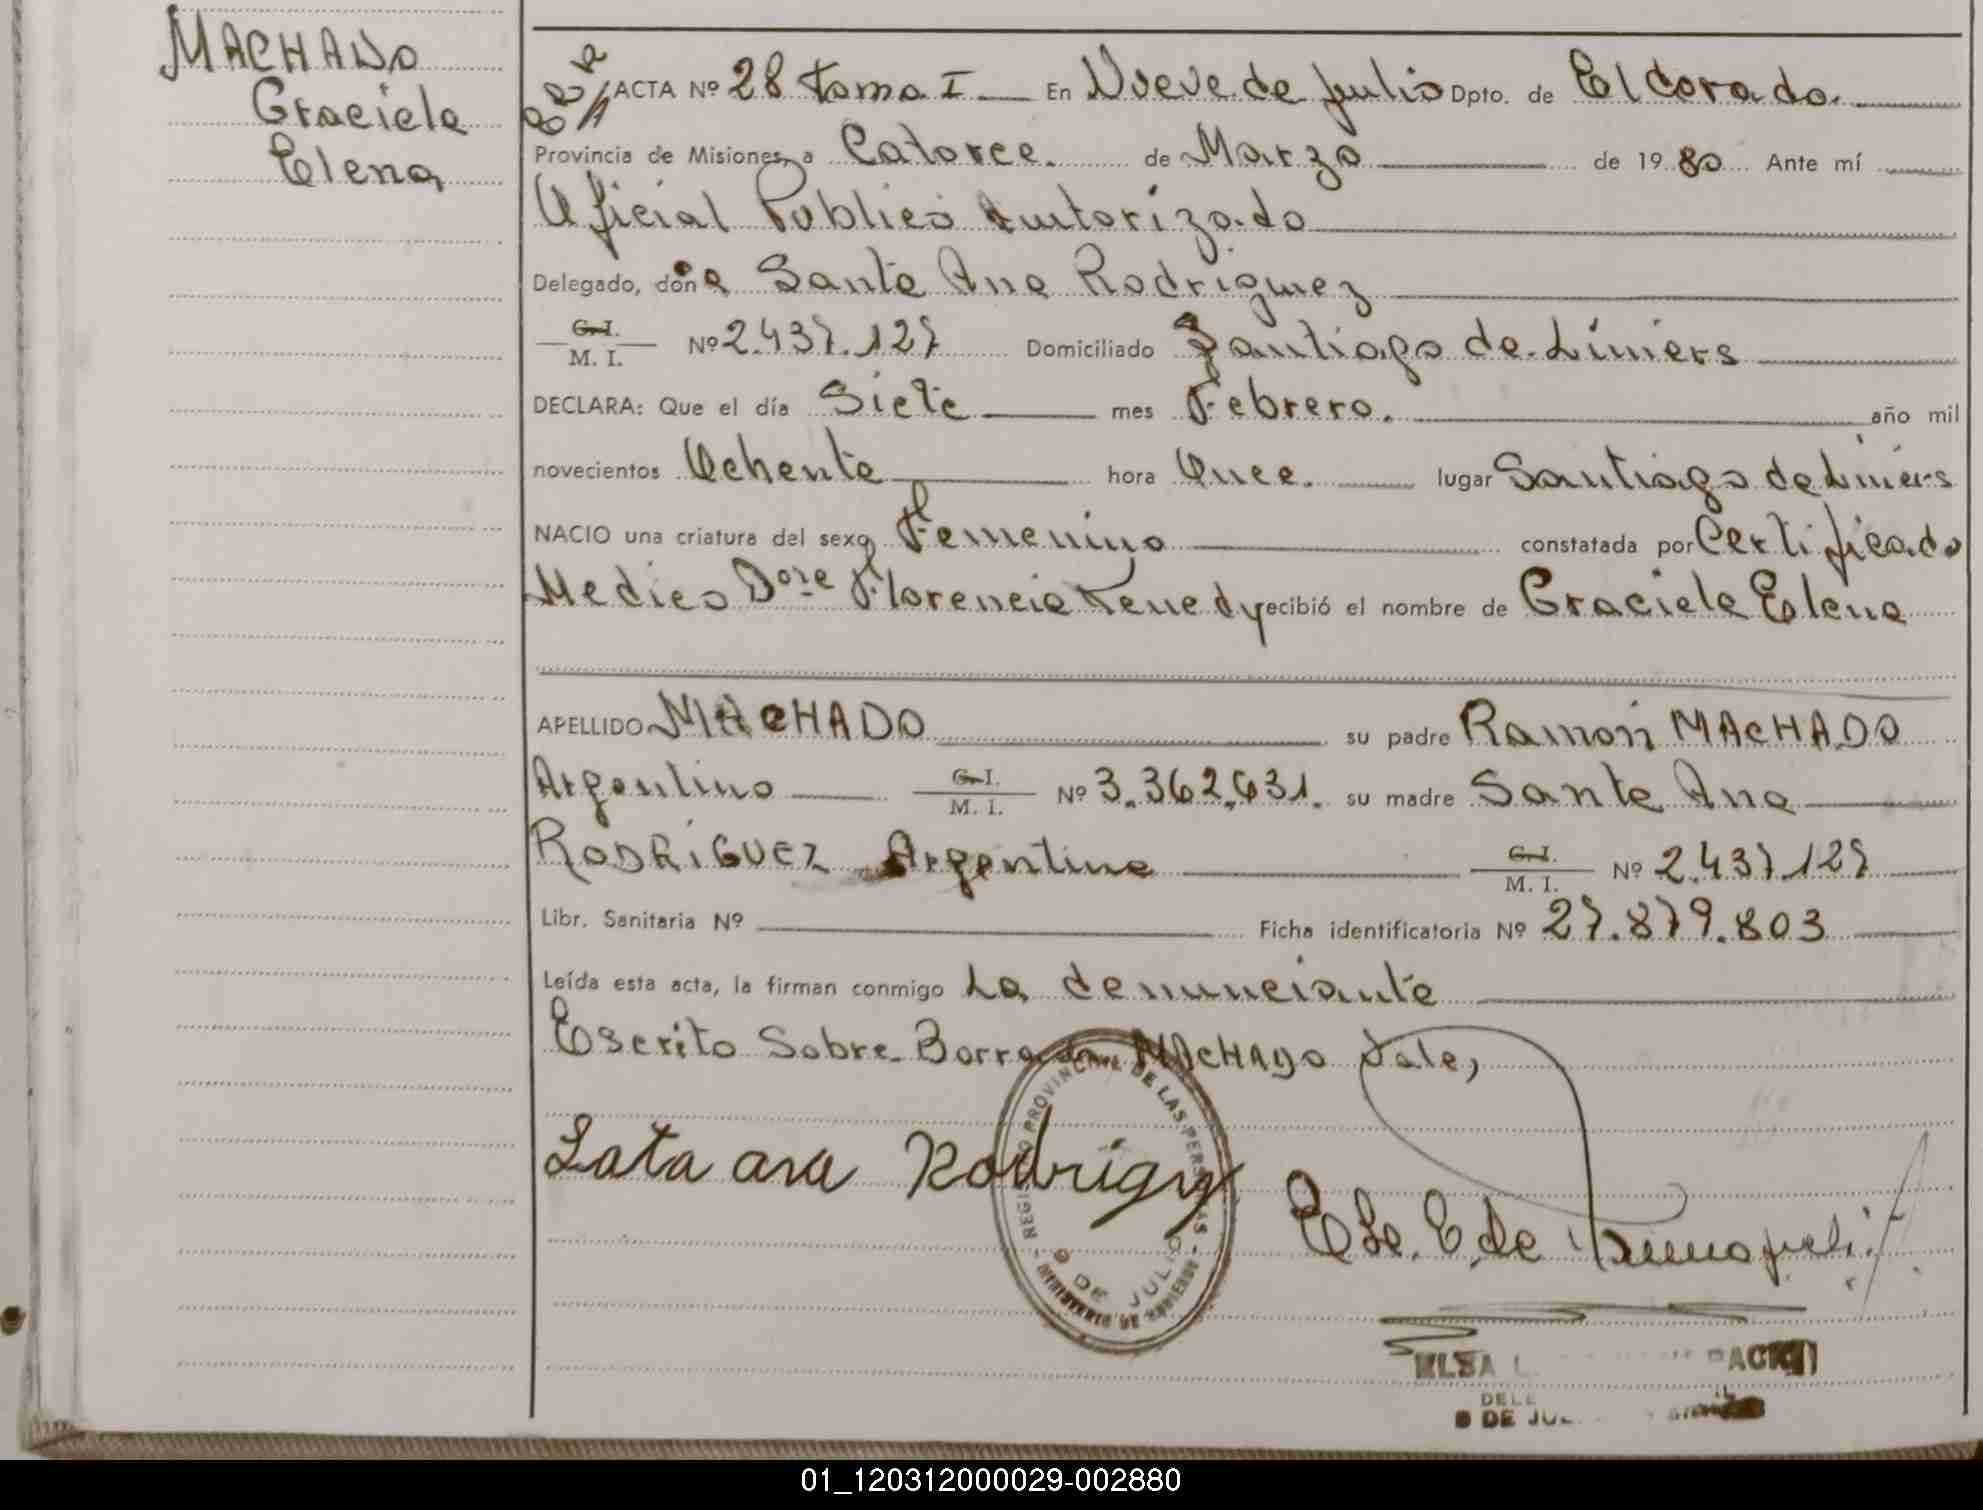 MACHADO
Graciela
Elena
ACTA Nº 28 tomo I En Nueve de Julio Dpto. de Eldorado.
Provincia de Misiones, a Catorce. de Marzo de 1980 Ante mí
Oficial Publico Autorizado
Delegado, doña Santa Ana Rodriguez
C. I.
M. I. Nº 2.437.127 Domiciliado Santiago de Liniers
DECLARA: Que el día Siete mes Febrero. año mil
novecientos Ochenta hora Once. lugar Santiago de Liniers
NACIO una criatura del sexo Femenino constatada por Certificado
Medico Dora Florencia Kenedy recibió el nombre de Graciela Elena
APELLIDO MACHADO su padre Ramón MACHADO
Argentino C. I. M. I. Nº 3.362.631. su madre Santa Ana
RODRIGUEZ Argentina C. I. M. I. Nº 2.437.127
Libr. Sanitaria Nº Ficha identificatoria Nº 27.879.803
Leída esta acta, la firman conmigo La denunciante
Escrito Sobre Borrado MACHADO Vale,
REGISTRO PROVINCIAL DE LAS PERSONAS
9 DE JULIO
ELSA
9 DE JUL
01_120312000029-002880